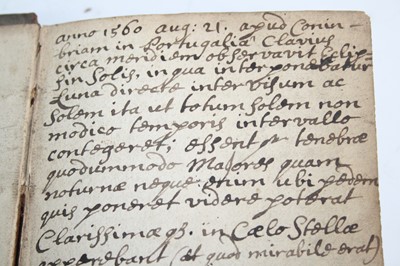 anno 1560 aug: 21. apud Conim-
briam in Portugalia Clavius
circa meridiem observavit Eclip-
sin Solis, in qua interponebatur
Luna directe inter visum ac
Solem ita ut totum solem non
modico temporis intervallo
contegeret; essent tenebræ
quodummodo Majores quam
nocturnæ neque enim ubi pedem
quis poneret videre poterat
Clarissimæ qz. in Cælo Stellæ
apperebant (et quod mirabile erat)